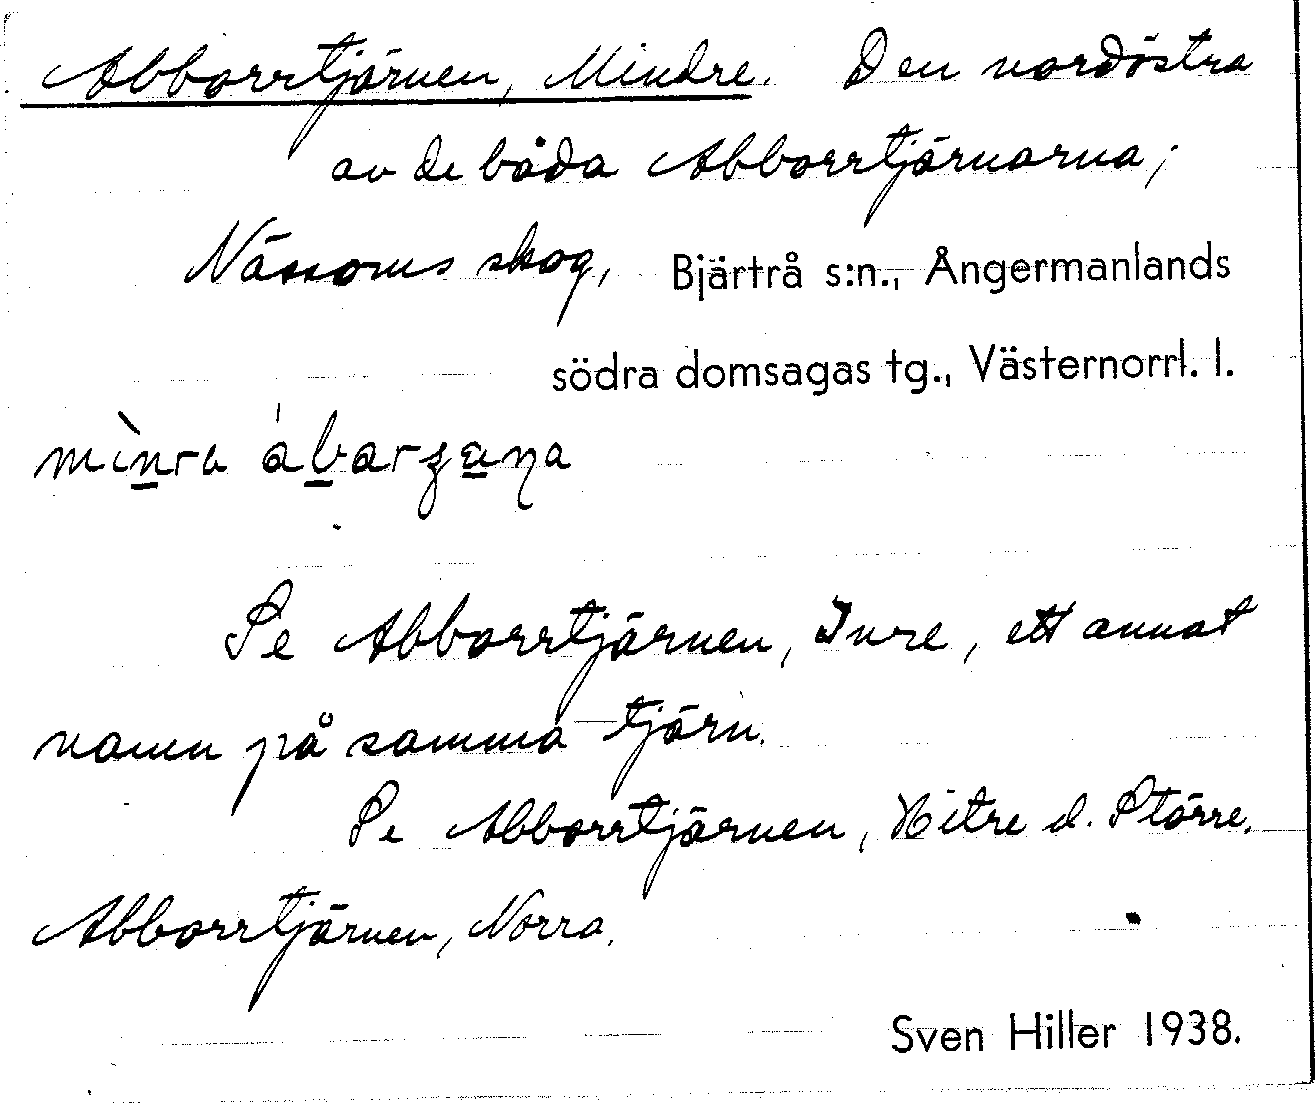 Abborrtjärnen, Mindre. Den nordöstra
av de båda Abborrtjärnarna;
Nässoms skog, Bjärtrå s:n., Ångermanlands
södra domsagas tg., Västernorrl. l.
Se Abborrtjärnen, Inre, ett annat
namn på samma tjärn.
Se Abborrtjärnen, Hitre d. Större.
Abborrtjärnen, Norra.
Sven Hiller 1938.